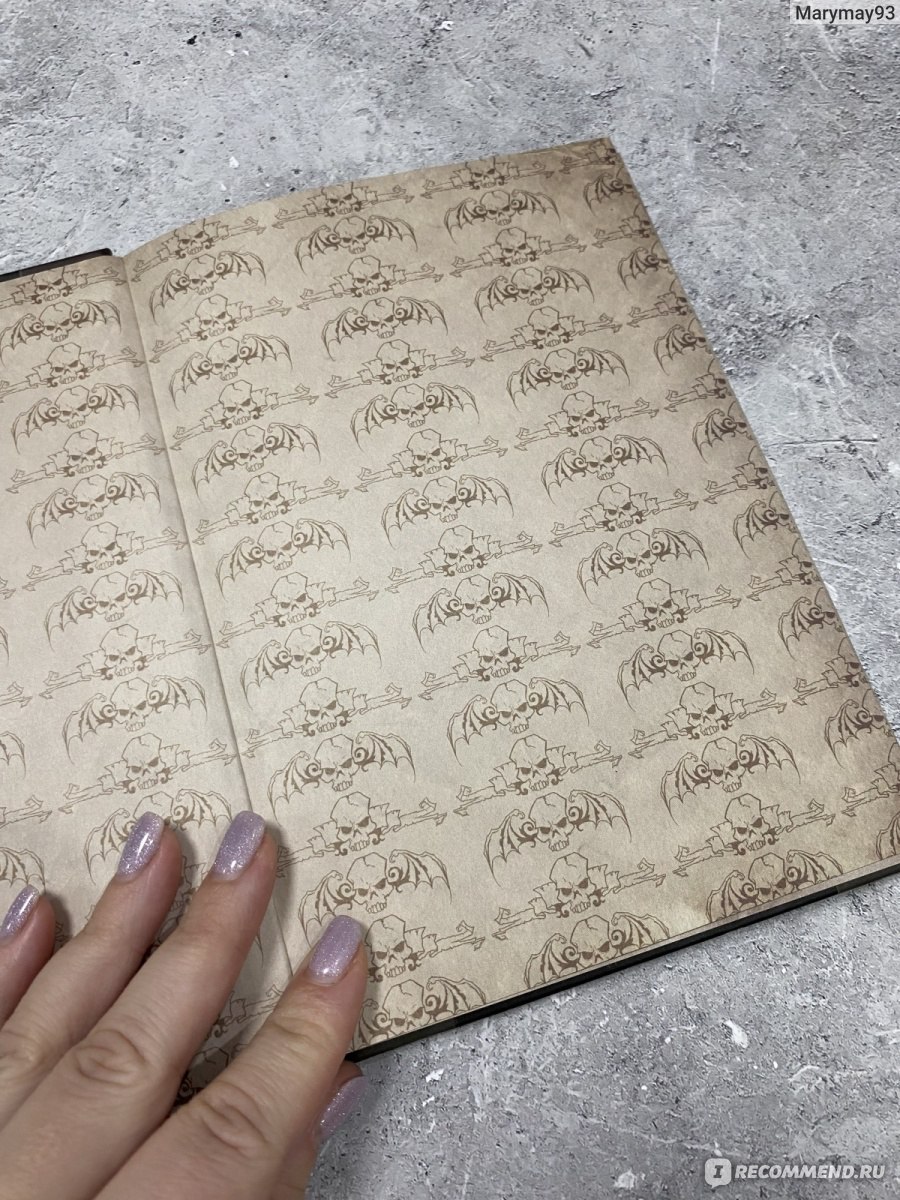 Marymay93
IRECOMMEND.RU